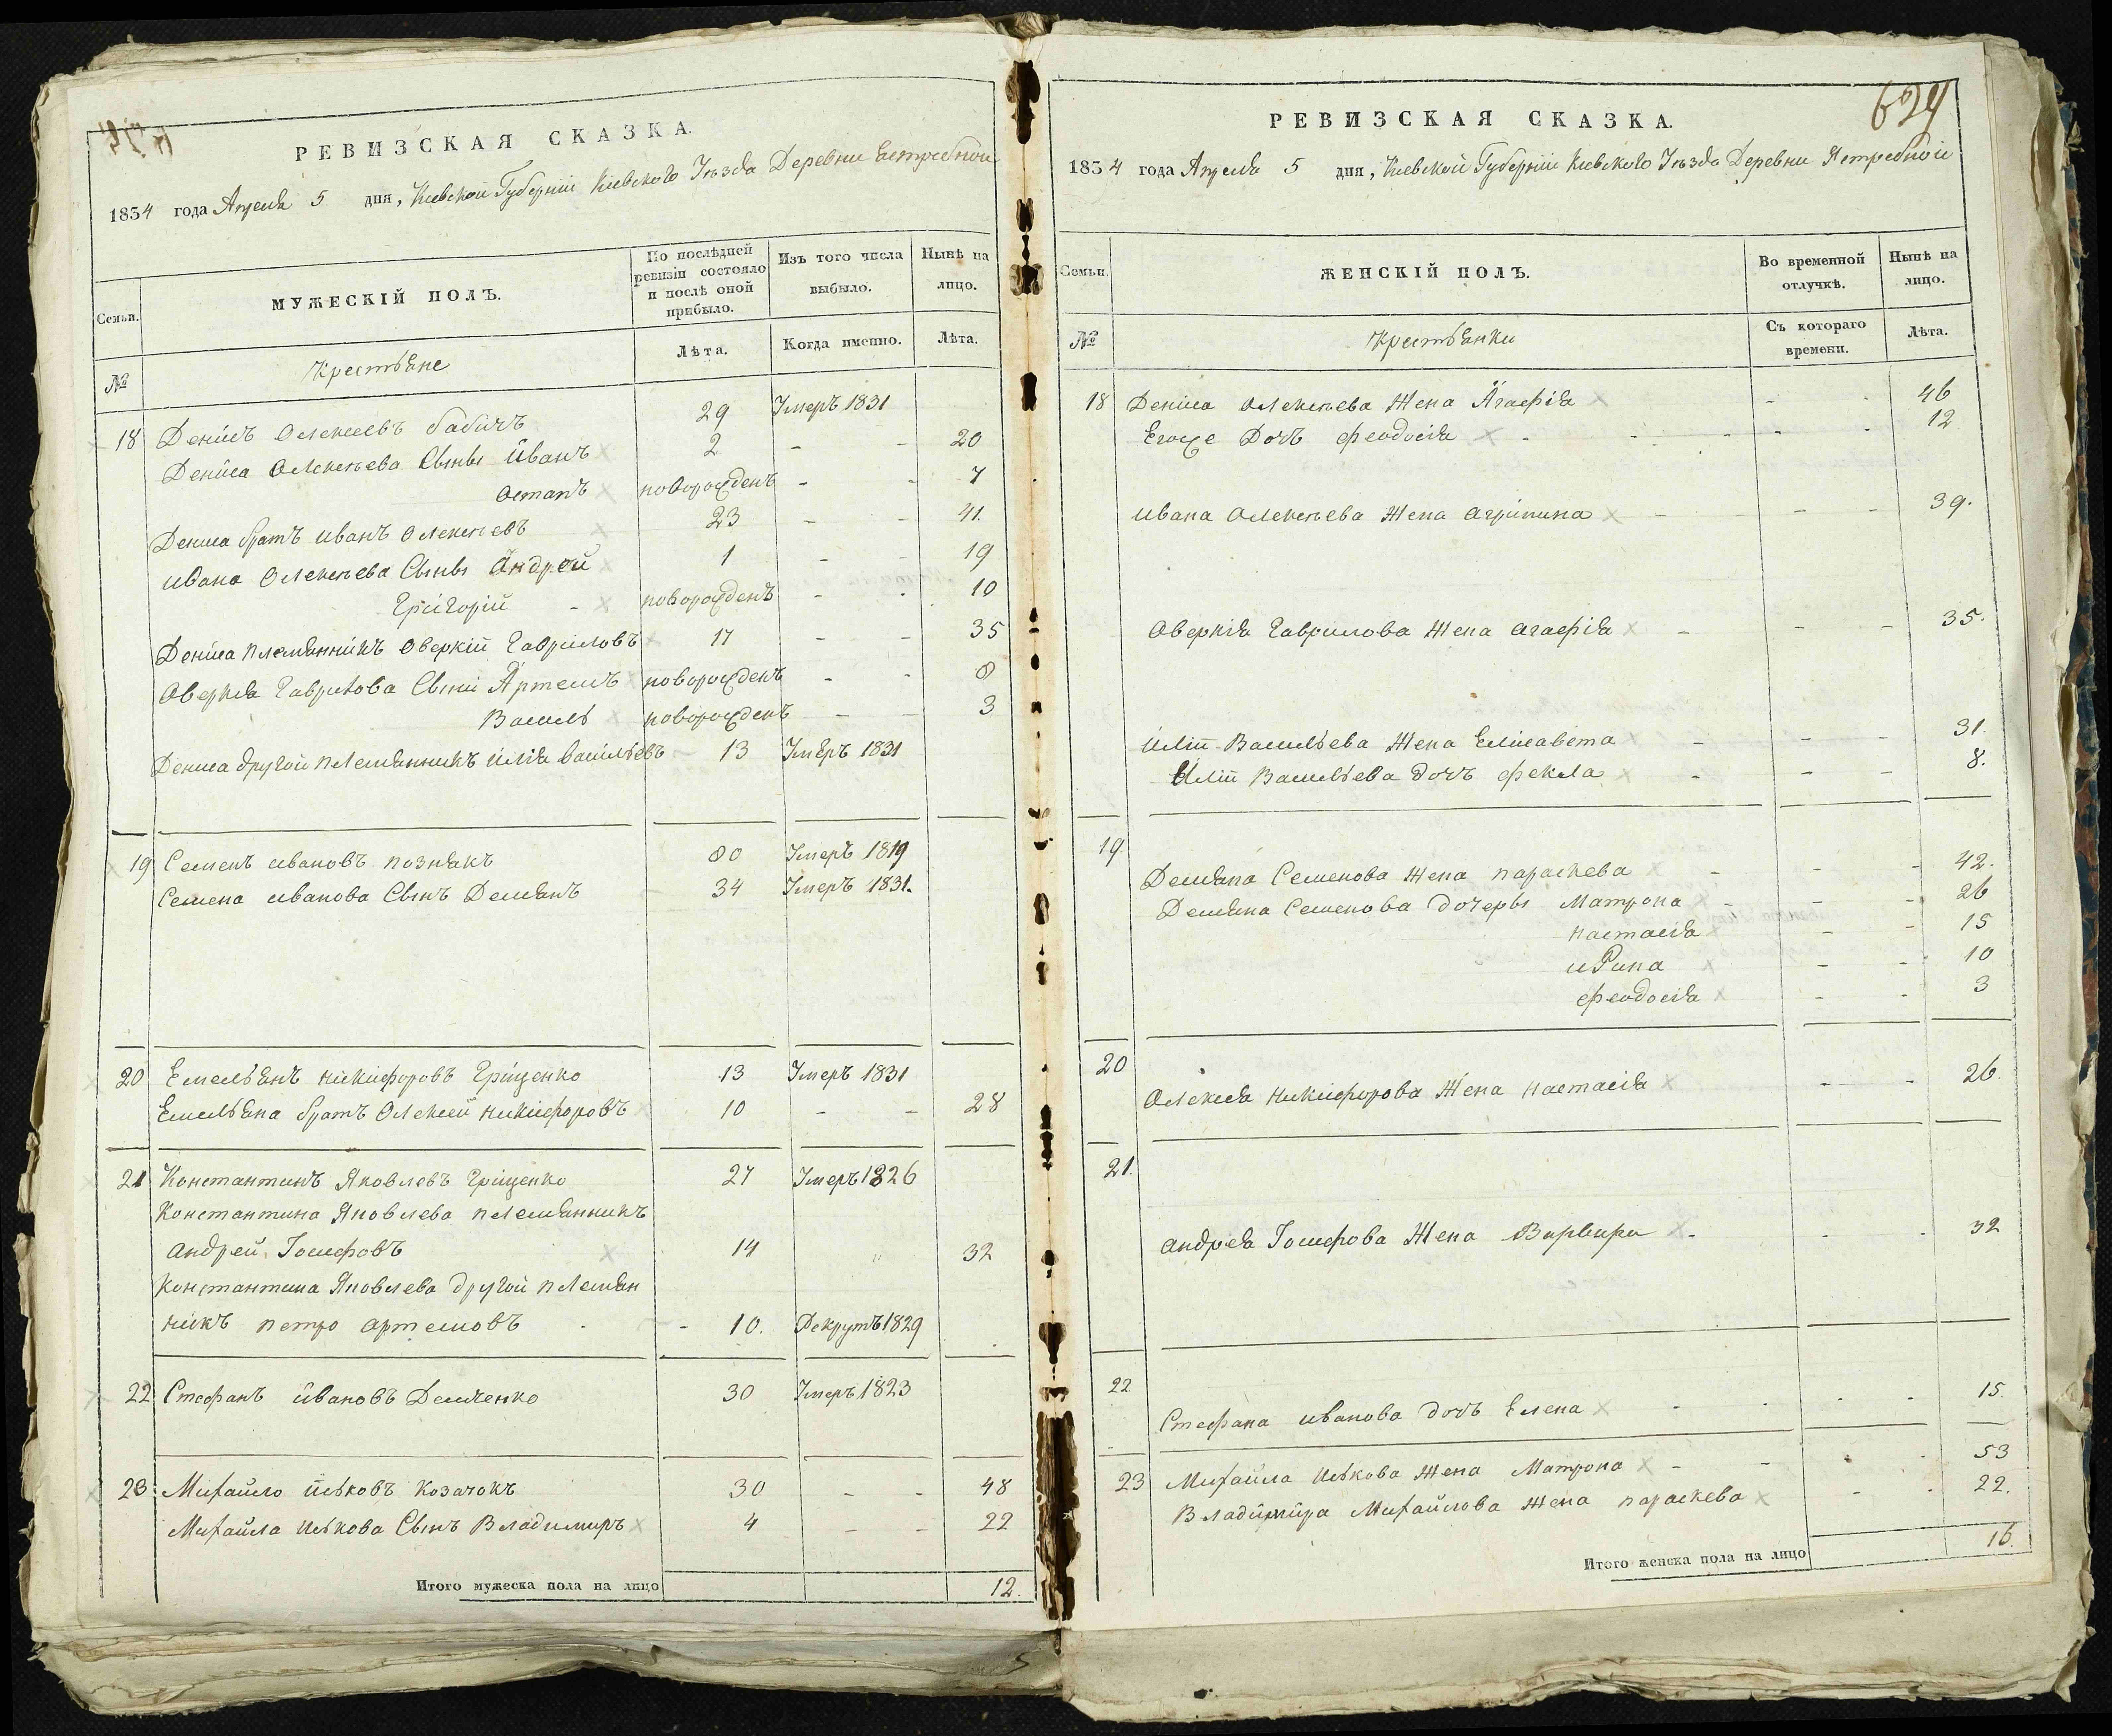 РЕВИЗСКАЯ СКАЗКА.
1834 года Апреля 5 дня, Киевской Губернiи Кiевского Уѣзда Деревни Ястребной
Семьи.
МУЖЕСКIЙ ПОЛЪ.
По послѣдней ревизiи состояло и послѣ оной прибыло.
Изъ того числа выбыло.
Нынѣ на лицо.
№
Крестьяне
Лѣта.
Когда именно.
Лѣта.
18 Денисъ Олексѣевъ бабичъ 29 Умеръ 1831
Дениса Олексѣева Сыны Иванъ 2 - - 20
Остапъ новорожденъ - - 7
Дениса братъ иванъ Олексѣевъ 23 - - 41.
ивана Олексѣева Сыны Андрей 1 - - 19
Григорiй - новорожденъ - - 10
Дениса племянникъ Оверкiй Гавриловъ 17 - - 35
Оверкiя Гаврилова Сыны Артемъ новорожденъ - - 8
Василь новорожденъ - - 3
Дениса другой племянникъ илiя васильевъ 13 Умеръ 1831
19 Семенъ ивановъ познякъ 80 Умеръ 1819
Семена иванова Сынъ Демянъ 34 Умеръ 1831.
20 Емельянъ никифоровъ Грищенко 13 Умеръ 1831
Емельяна братъ Олексей никифоровъ 10 - - 28
21 Константинъ Яковлевъ Грищенко 27 Умеръ 1826
Константина Яковлева племянникъ
андрей Iосифовъ 14 " 32
Константина Яковлева другой племян
никъ петро артемовъ - 10. Рекрутъ 1829
22 Стефанъ ивановъ Демченко 30 Умеръ 1823
23 Михайло ицковъ козачокъ 30 - - 48
Михайла Сынъ Владимиръ 4 - - 22
Итого мужеска пола на лицо 12.
624
РЕВИЗСКАЯ СКАЗКА.
1834 года Апреля 5 дня, Киевской Губернiи Киевского Уѣзда Деревни Ястребной
Семьи.
ЖЕНСКIЙ ПОЛЪ.
Во временной отлучкѣ.
Нынѣ на лицо.
№
Крестьянки
Съ котораго времени.
Лѣта.
18 Дениса Олексѣева Жена Агафiя - - 46
Егоже Дочь феодосiя - - 12
ивана Олексѣева Жена агрипина - - 39.
Оверкiя Гаврилова Жена агафiя - - 35.
Илiи Васильева Жена Елисавета - - 31.
Илiи Васильева дочь фекла - - 8.
19. Демяна Семенова Жена параскева - - 42.
Демяна Семенова дочеры Матрона - - 26
настасiя - - 15
ирина - - 10
феодосiя - - 3
20 Олексея никифорова Жена настасiя - - 26.
21. андрея Iосифова Жена Варвара - - 32
22 Стефана иванова дочь Елена - - 15.
23 Михайла Жена Матрона - - 53
Владимира Михайлова жена параскева - - 22.
Итого женска пола на лицо 16.